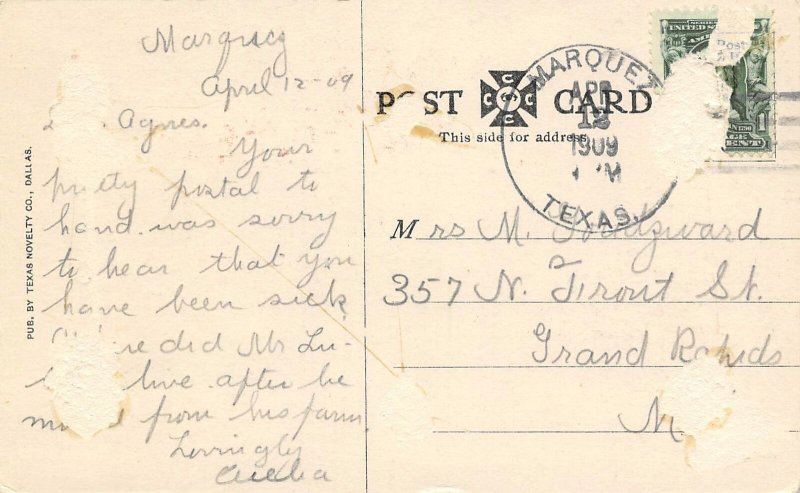 Marquez
April 12-09
Agnes.
Your
pretty postal to
hand was sorry
to hear that you
have been sick
did Mr Lu-
live after he
from his farm
Lovingly
PUB. BY TEXAS NOVELTY CO., DALLAS.
POST CARD
This side for address.
MARQUEZ
APR
12
1909
M
TEXAS.
Mrs M.
357 N. Front St.
Grand Rapids
M